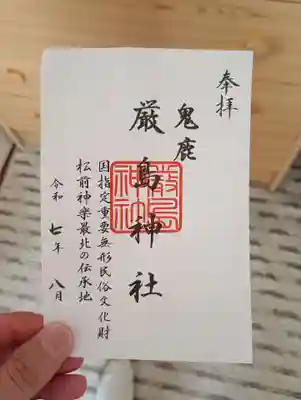 奉拝
鬼鹿
厳島神社
国指定重要無形民俗文化財
松前神楽最北の伝承地
令和七年八月
厳島
神社